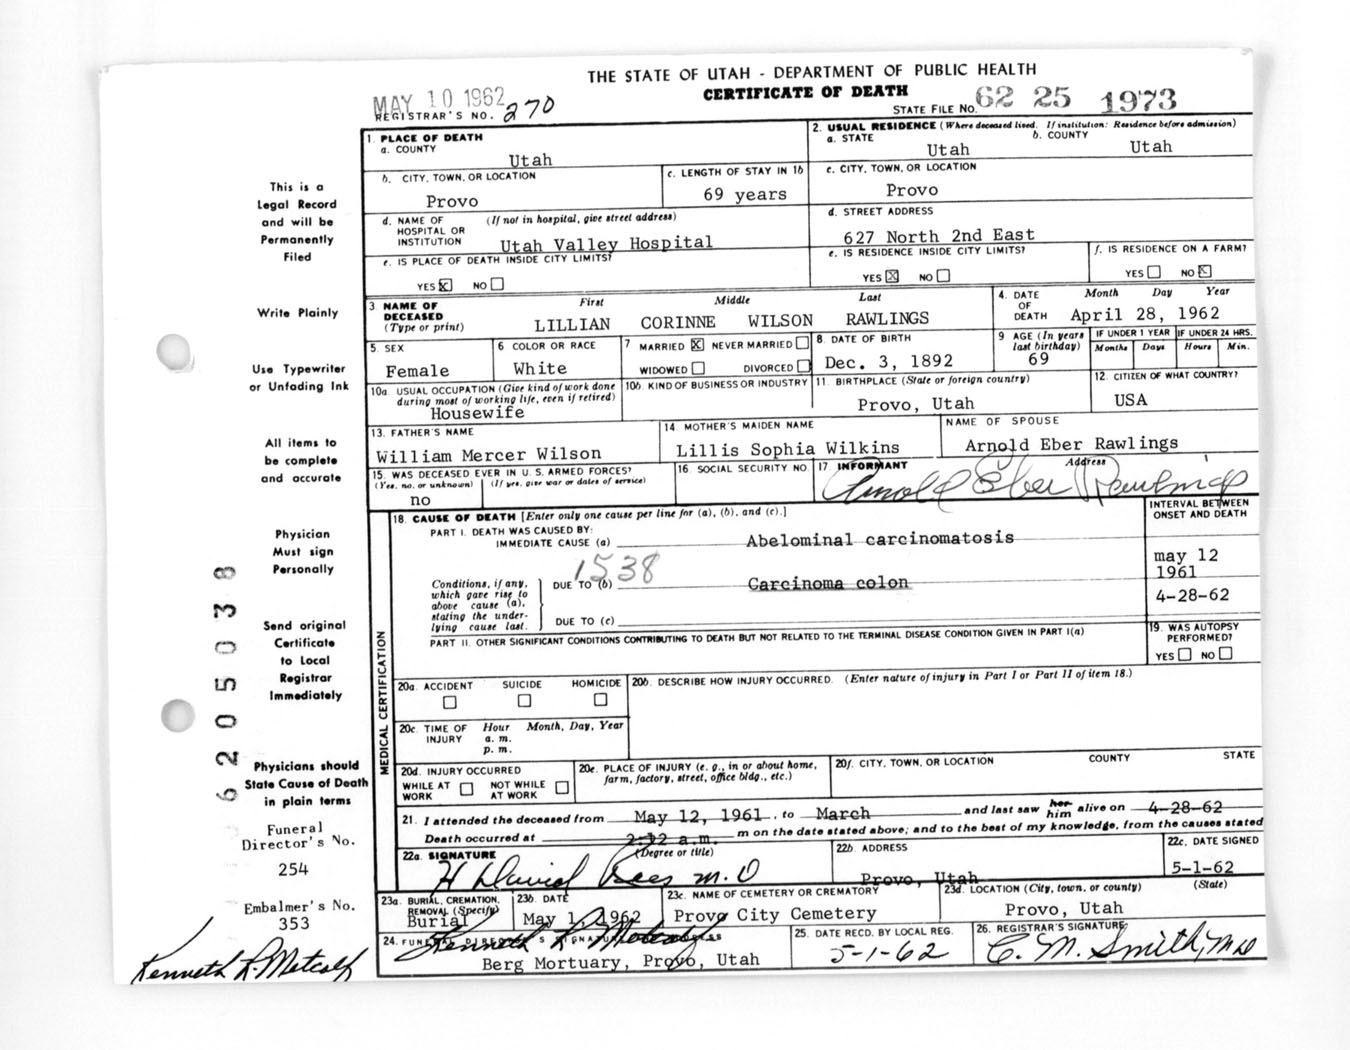 THE STATE OF UTAH - DEPARTMENT OF PUBLIC HEALTH
CERTIFICATE OF DEATH
MAY 10 1962
REGISTRAR'S NO. 270
STATE FILE NO. 62 25 1973
1. PLACE OF DEATH
a. COUNTY
Utah
2. USUAL RESIDENCE (Where deceased lived. If institution: Residence before admission)
a. STATE
Utah
b. COUNTY
Utah
b. CITY, TOWN, OR LOCATION
Provo
c. LENGTH OF STAY IN 1b
69 years
c. CITY, TOWN, OR LOCATION
Provo
d. NAME OF HOSPITAL OR INSTITUTION
(If not in hospital, give street address)
Utah Valley Hospital
d. STREET ADDRESS
627 North 2nd East
e. IS PLACE OF DEATH INSIDE CITY LIMITS?
YES ☒ NO ☐
e. IS RESIDENCE INSIDE CITY LIMITS?
YES ☒ NO ☐
f. IS RESIDENCE ON A FARM?
YES ☐ NO ☒
3 NAME OF DECEASED (Type or print)
First Middle Last
LILLIAN CORINNE WILSON RAWLINGS
4. DATE OF DEATH
Month Day Year
April 28, 1962
5. SEX
Female
6 COLOR OR RACE
White
7 MARRIED ☒ NEVER MARRIED ☐
WIDOWED ☐ DIVORCED ☐
8 DATE OF BIRTH
Dec. 3, 1892
9 AGE (In years last birthday)
69
IF UNDER 1 YEAR
Months Days
IF UNDER 24 HRS.
Hours Min.
10a USUAL OCCUPATION (Give kind of work done during most of working life, even if retired)
Housewife
10b KIND OF BUSINESS OR INDUSTRY
11. BIRTHPLACE (State or foreign country)
Provo, Utah
12. CITIZEN OF WHAT COUNTRY?
USA
13. FATHER'S NAME
William Mercer Wilson
14 MOTHER'S MAIDEN NAME
Lillis Sophia Wilkins
NAME OF SPOUSE
Arnold Eber Rawlings
15. WAS DECEASED EVER IN U. S. ARMED FORCES?
(Yes, no, or unknown) (If yes, give war or dates of service)
no
16. SOCIAL SECURITY NO.
17. INFORMANT
Address
Arnold Eber Rawlings
18. CAUSE OF DEATH [Enter only one cause per line for (a), (b), and (c).]
INTERVAL BETWEEN ONSET AND DEATH
PART I. DEATH WAS CAUSED BY:
IMMEDIATE CAUSE (a) Abelominal carcinomatosis
may 12 1961
1538
Conditions, if any, which gave rise to above cause (a), stating the under-lying cause last.
DUE TO (b) Carcinoma colon
4-28-62
DUE TO (c)
PART II. OTHER SIGNIFICANT CONDITIONS CONTRIBUTING TO DEATH BUT NOT RELATED TO THE TERMINAL DISEASE CONDITION GIVEN IN PART I(a)
19. WAS AUTOPSY PERFORMED?
YES ☐ NO ☐
MEDICAL CERTIFICATION
20a. ACCIDENT SUICIDE HOMICIDE
☐ ☐ ☐
20b. DESCRIBE HOW INJURY OCCURRED. (Enter nature of injury in Part I or Part II of item 18.)
20c. TIME OF INJURY
Hour Month, Day, Year
a. m.
p. m.
20d. INJURY OCCURRED
WHILE AT WORK ☐ NOT WHILE AT WORK ☐
20e. PLACE OF INJURY (e. g., in or about home, farm, factory, street, office bldg., etc.)
20f. CITY, TOWN, OR LOCATION COUNTY STATE
21. I attended the deceased from May 12, 1961, to March and last saw her him alive on 4-28-62
Death occurred at 2:12 a.m. m on the date stated above; and to the best of my knowledge, from the causes stated
22a. SIGNATURE (Degree or title)
H David Rees M.D
22b. ADDRESS
Provo, Utah
22c. DATE SIGNED
5-1-62
23a. BURIAL, CREMATION, REMOVAL (Specify)
Burial
23b. DATE
May 1, 1962
23c. NAME OF CEMETERY OR CREMATORY
Provo City Cemetery
23d. LOCATION (City, town, or county) (State)
Provo, Utah
24. FUNERAL DIRECTOR'S SIGNATURE ADDRESS
Kenneth R Metcalf
Berg Mortuary, Provo, Utah
25. DATE RECD. BY LOCAL REG.
5-1-62
26. REGISTRAR'S SIGNATURE
C. M. Smith, MD
This is a
Legal Record
and will be
Permanently
Filed
Write Plainly
Use Typewriter
or Unfading Ink
All items to
be complete
and accurate
Physician
Must sign
Personally
Send original
Certificate
to Local
Registrar
Immediately
Physicians should
State Cause of Death
in plain terms
Funeral
Director's No.
254
Embalmer's No.
353
Kenneth R. Metcalf
6205038